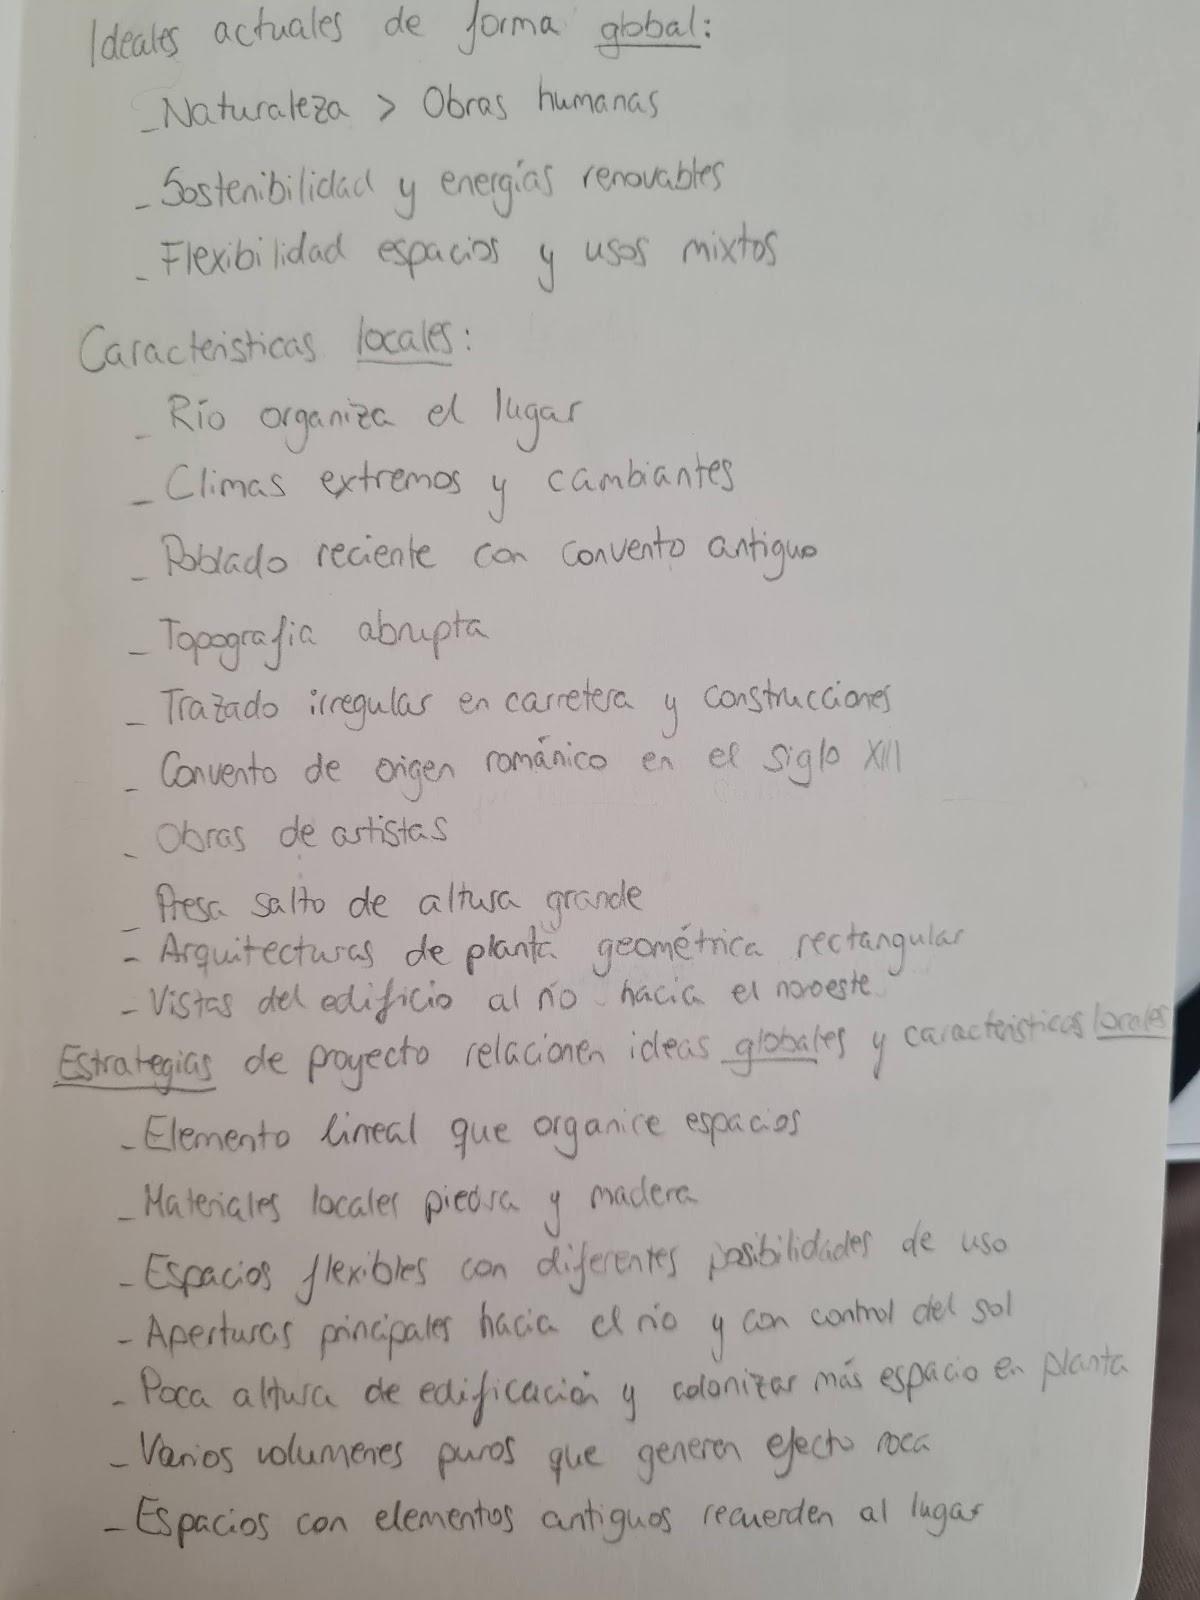 Ideales actuales de forma global:
- Naturaleza > Obras humanas
- Sostenibilidad y energías renovables
- Flexibilidad espacios y usos mixtos
Caracteristicas locales:
- Río organiza el lugar
- Climas extremos y cambiantes
- Poblado reciente con convento antiguo
- Topografia abrupta
- Trazado irregular en carretera y construcciones
- Convento de origen románico en el siglo XIII
- Obras de artistas
- Presa salto de altura grande
- Arquitecturas de planta geométrica rectangular
- Vistas del edificio al río hacia el noroeste
Estrategias de proyecto relacionen ideas globales y caracteristicas locales
- Elemento lineal que organice espacios
- Materiales locales piedra y madera
- Espacios flexibles con diferentes posibilidades de uso
- Aperturas principales hacia el río y con control del sol
- Poca altura de edificación y colonizar más espacio en planta
- Varios volumenes puros que generen efecto roca
- Espacios con elementos antiguos recuerden al lugar